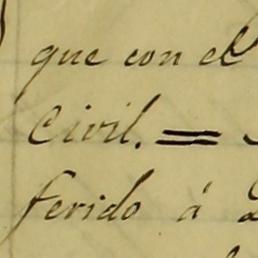 que con el
Civil. =
ferido á